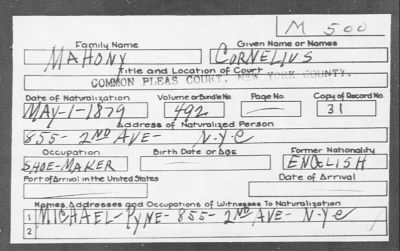 M 500
Family Name Given Name or Names
MAHONY CORNELIUS
Title and Location of Court
COMMON PLEAS COURT, NEW YORK COUNTY.
Date of Naturalization Volume or Bundle No Page No. Copy of Record No.
MAY-1-1879 492 31
Address of Naturalized Person
855- 2ND AVE- N-Y-C
Occupation Birth Date or Age Former Nationality
SHOE-MAKER ENGLISH
Port of Arrival in the United States Date of Arrival
Names, Addresses and Occupations of Witnesses To Naturalization
1 MICHAEL-PYNE-855-2ND AVE-N-Y-C
2